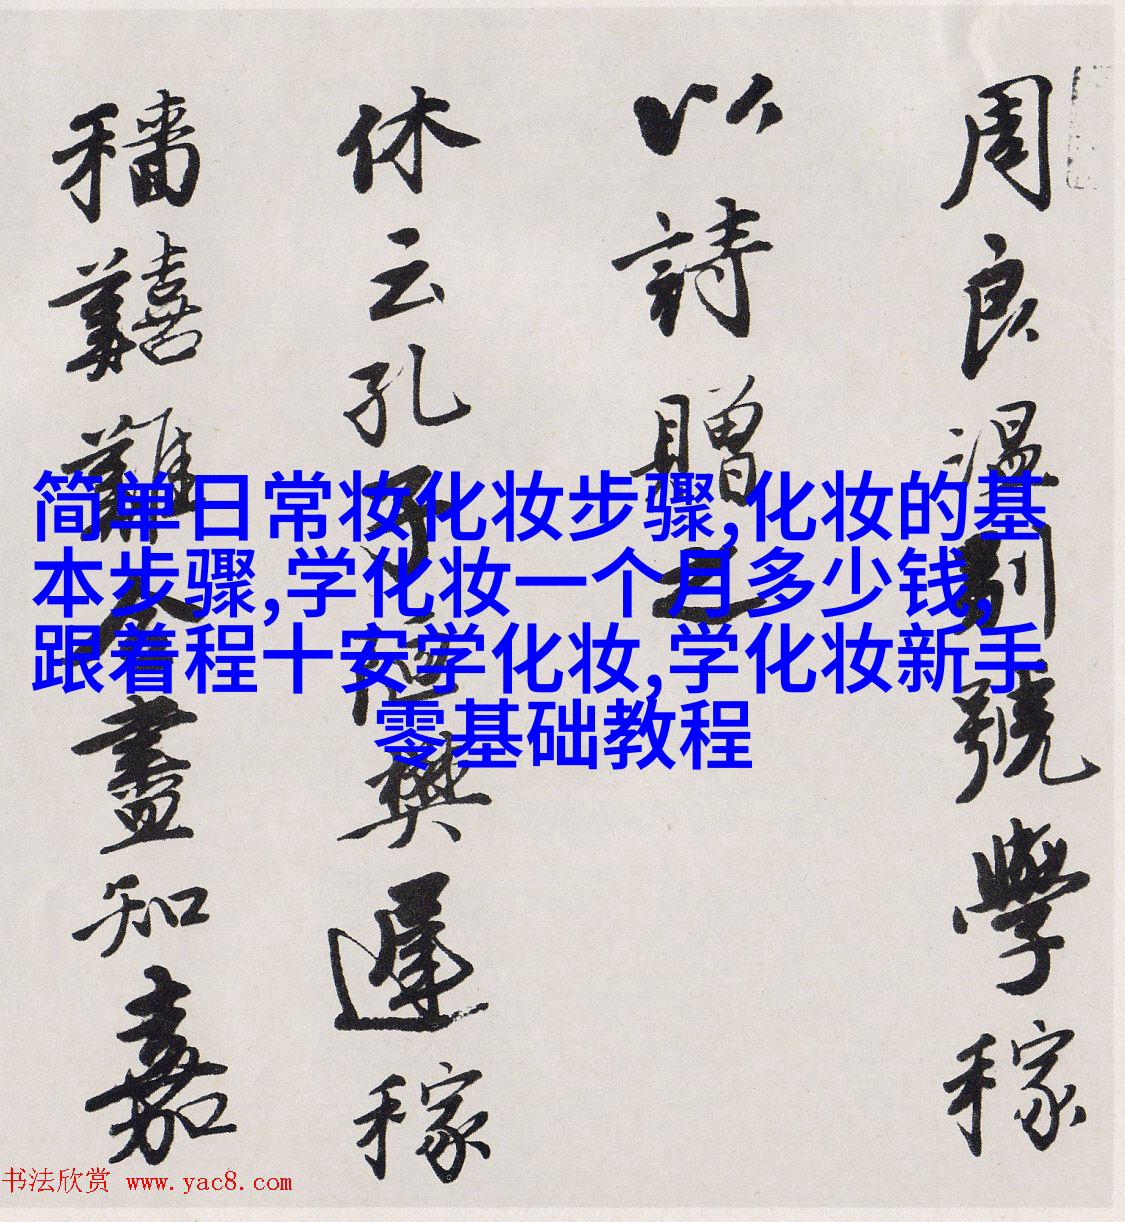 周良温别號學稼
以詩贈之
休云孔子隘樊遲稼
穡囏難人盡知嘉
简单日常妆化妆步骤,化妆的基
本步骤,学化妆一个月多少钱,
跟着程十安学化妆,学化妆新手
零基础教程
书法欣赏 www.yac8.com